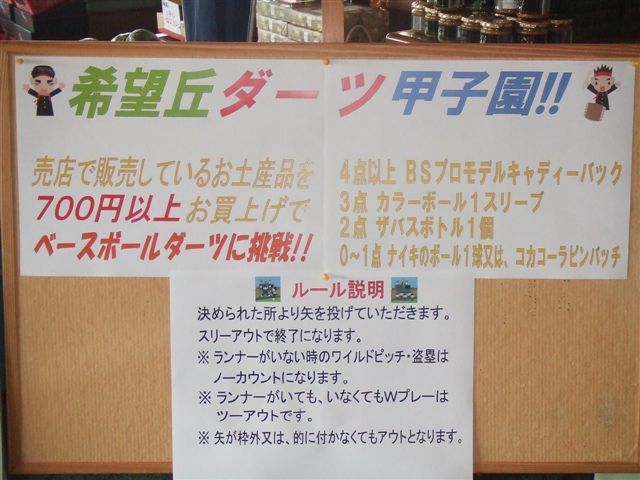 希望丘ダーツ甲子園!!
売店で販売しているお土産品を
700円以上お買上げで
ベースボールダーツに挑戦!!
4点以上 BSプロモデルキャディーバック
3点 カラーボール1スリーブ
2点 ザバスボトル1個
0〜1点 ナイキのボール1球又は、コカコーラピンバッチ
ルール説明
決められた所より矢を投げていただきます。
スリーアウトで終了になります。
※ ランナーがいない時のワイルドピッチ・盗塁は
ノーカウントになります。
※ ランナーがいても、いなくてもWプレーは
ツーアウトです。
※ 矢が枠外又は、的に付かなくてもアウトとなります。